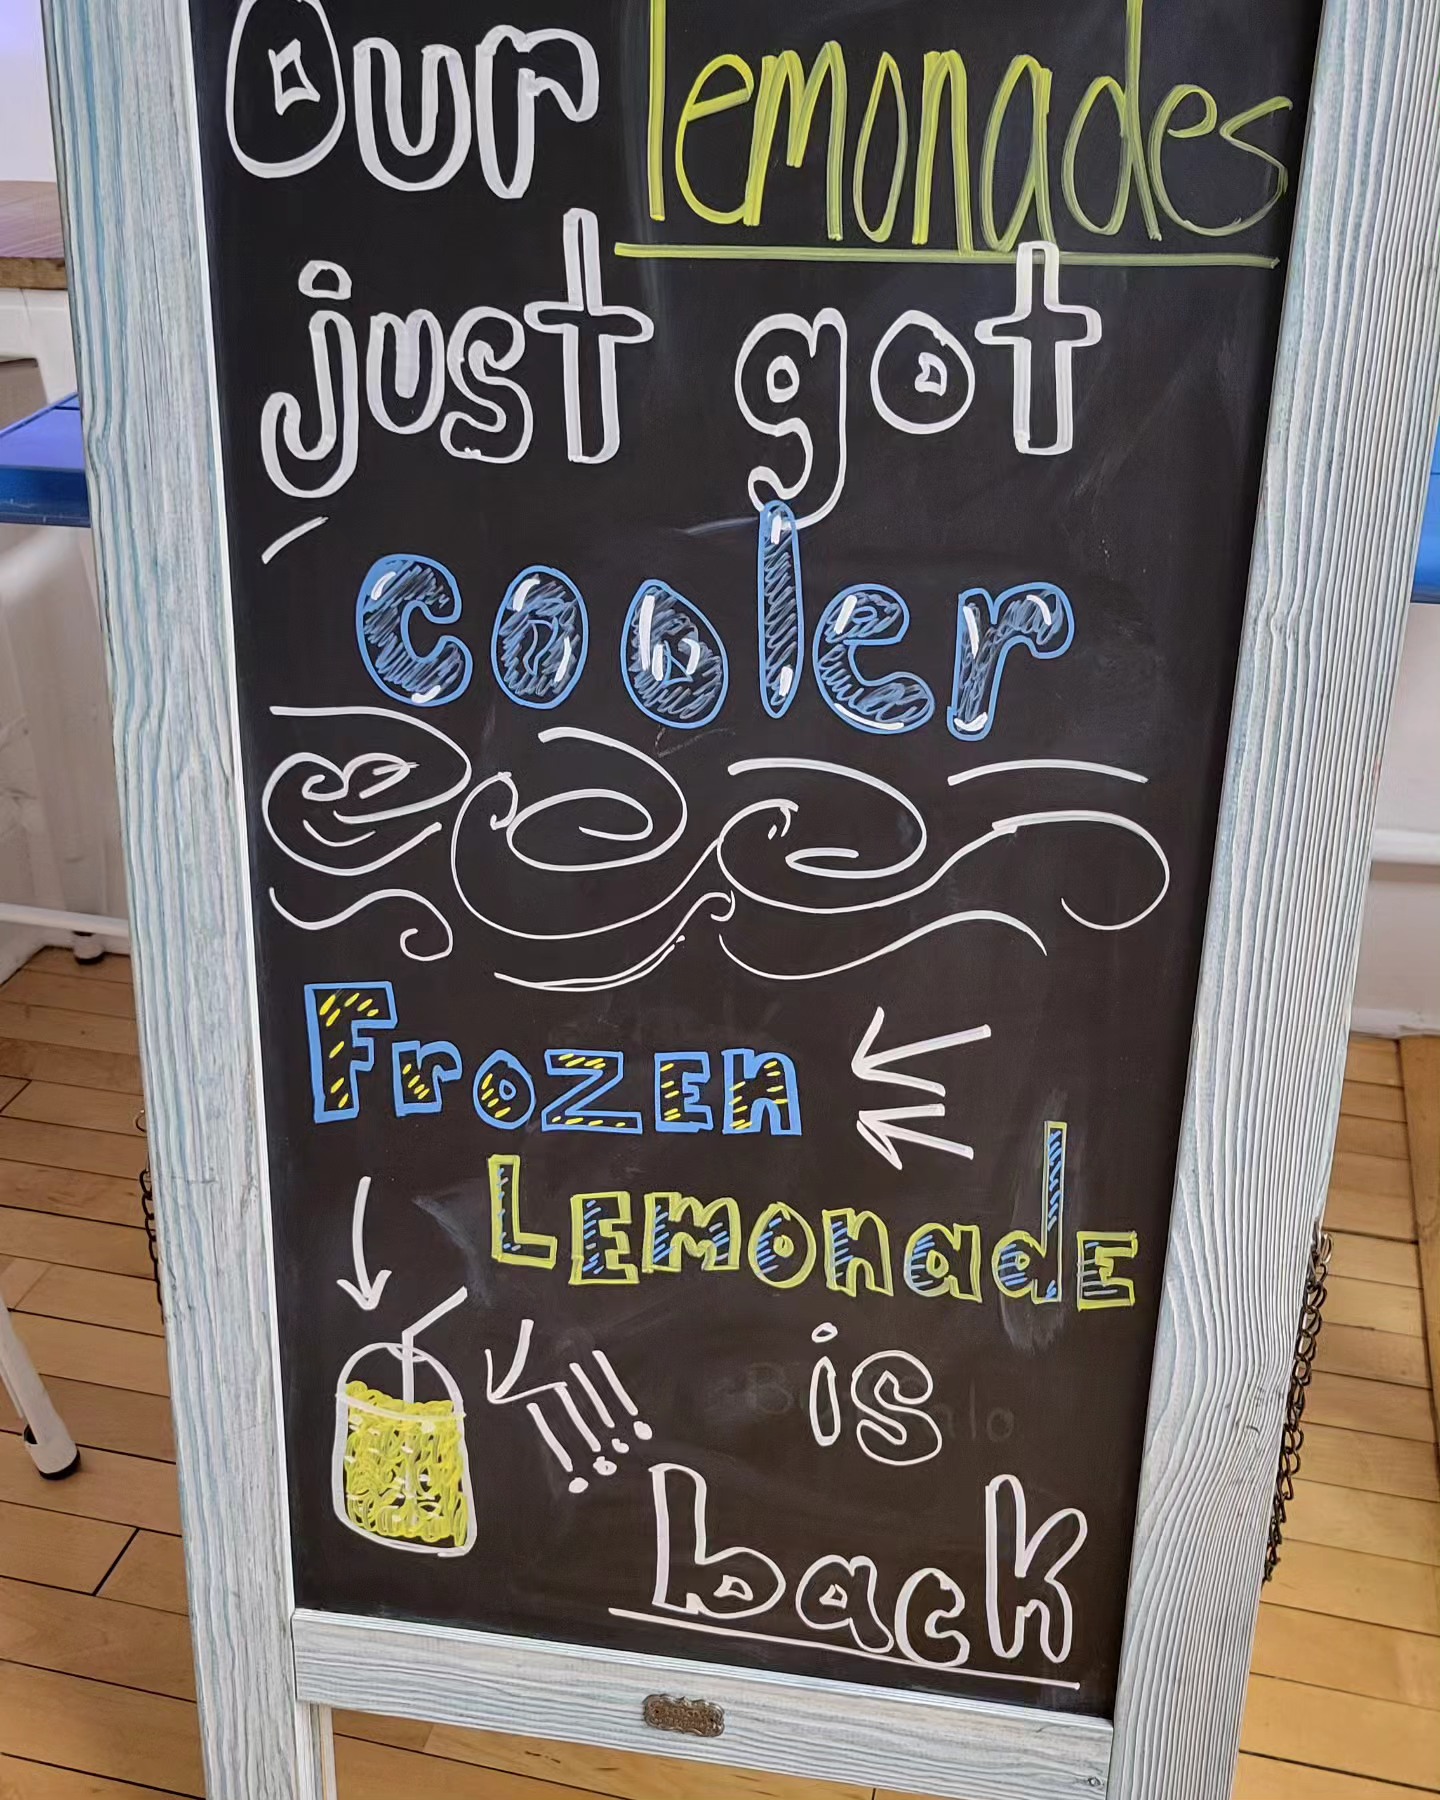 Our lemonades
just got
cooler
Frozen
Lemonade
is
!!!
back